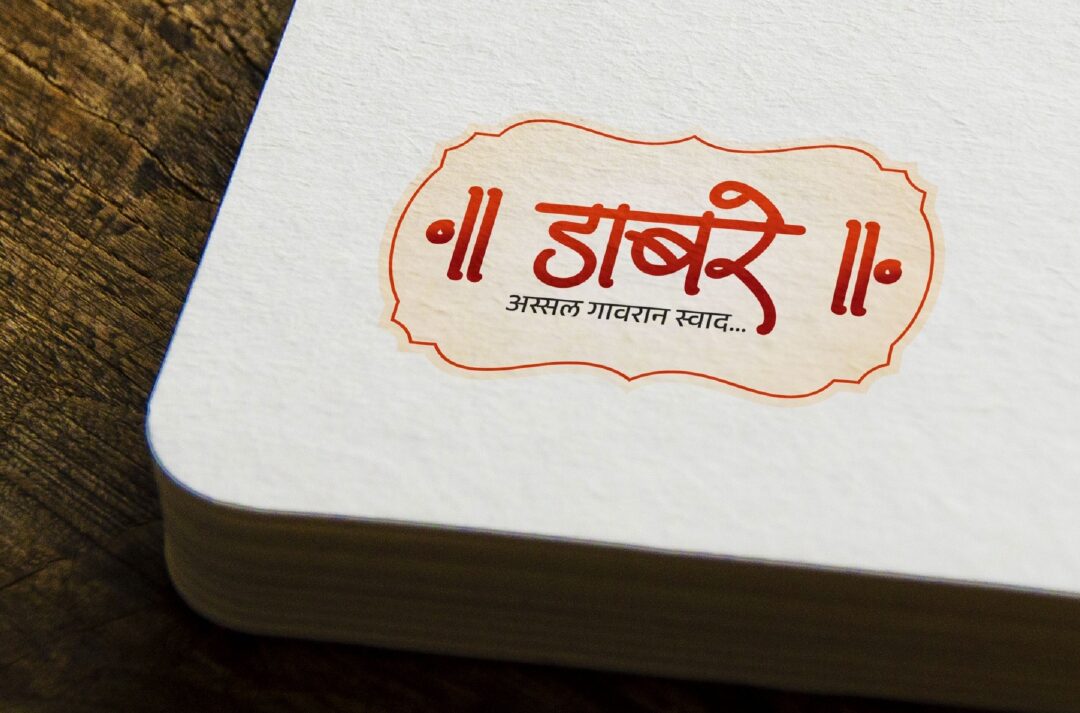 ॥ डाबरे ॥
अस्सल गावरान स्वाद...